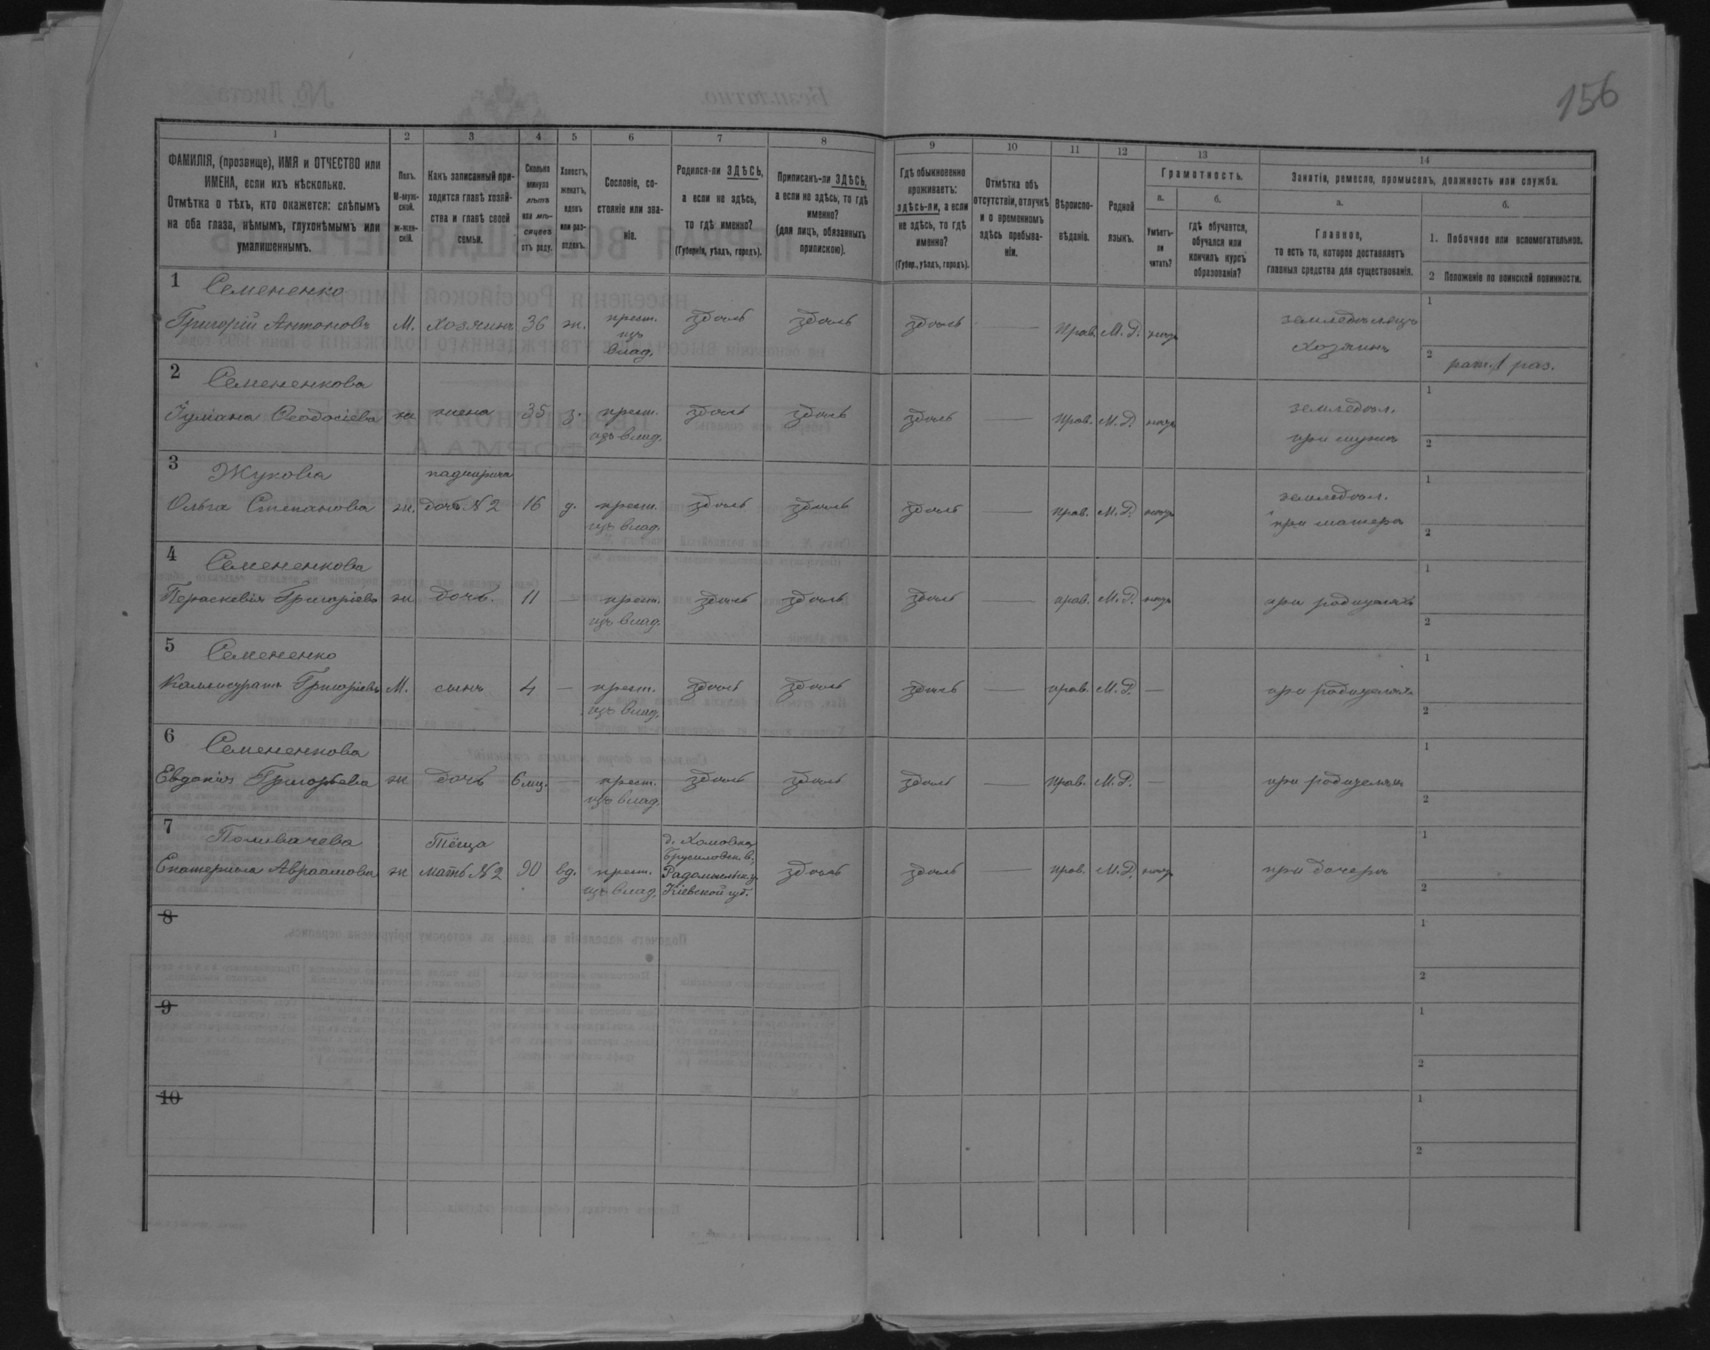 156
1 2 3 4 5 6 7 8 9 10 11 12 13 14
ФАМИЛІЯ, (прозвище), ИМЯ и ОТЧЕСТВО или
ИМЕНА, если ихъ нѣсколько.
Отмѣтка о тѣхъ, кто окажется: слѣпымъ
на оба глаза, нѣмымъ, глухонѣмымъ или
умалишеннымъ.
Полъ.
М-муж-
ской.
ж-жен-
скій.
Какъ записанный при-
ходится главѣ хозяй-
ства и главѣ своей
семьи.
Сколько
минуло
лѣтъ
или мѣ-
сяцевъ
отъ роду.
Холостъ,
женатъ,
вдовъ
или раз-
веденъ.
Сословіе, со-
стояніе или зва-
ніе.
Родился-ли ЗДѢСЬ,
а если не здѣсь,
то гдѣ именно?
(Губернія, уѣздъ, городъ).
Приписанъ-ли ЗДѢСЬ,
а если не здѣсь, то гдѣ
именно?
(для лицъ, обязанныхъ
припискою).
Гдѣ обыкновенно
проживаетъ:
здѣсь-ли, а если
не здѣсь, то гдѣ
именно?
(Губер., уѣздъ, городъ).
Отмѣтка объ
отсутствіи, отлучкѣ
и о временномъ
здѣсь пребыва-
ніи.
Вѣроиспо-
вѣданіе.
Родной
языкъ.
Грамотность.
а.
Умѣетъ-
ли
читать?
б.
гдѣ обучается,
обучался или
кончилъ курсъ
образованія?
Занятія, ремесло, промыселъ, должность или служба.
а.
Главное,
то есть то, которое доставляетъ
главныя средства для существованія.
б.
1. Побочное или вспомогательное.
2 Положеніе по воинской повинности.
1 Семененко
Григорій Антоновъ М. хозяинъ 36 ж. крест. изъ влад. здѣсь здѣсь здѣсь — прав. М. Р. нѣтъ земледѣлецъ хозяинъ
1
2 рат. 1 раз.
2 Семененкова
Ѳеодосіева ж жена 35 з. крест. изъ влад. здѣсь здѣсь здѣсь — прав. М. Р. нѣтъ земледѣл. при мужѣ
1
2
3 Жукова
Ольга Степанова ж. падчерица дочь N 2 16 д. крест. изъ влад. здѣсь здѣсь здѣсь — прав. М. Р. нѣтъ земледѣл. при матери
1
2
4 Семененкова
Параскевія Григоріева ж дочь. 11 — крест. изъ влад. здѣсь здѣсь здѣсь — прав. М. Р. нѣтъ при родителяхъ
1
2
5 Семененко
Каллистратъ Григоріевъ М. сынъ 4 — крест. изъ влад. здѣсь здѣсь здѣсь — прав. М. Р. — при родителяхъ
1
2
6 Семененкова
Евдокія Григорьева ж дочь 6 мц. — крест. изъ влад. здѣсь здѣсь здѣсь — прав. М. Р. — при родителяхъ
1
2
7 Поливачова
Екатерина Авраамова ж Тёща мать N 2 90 вд. крест. изъ влад.
Брусиловск. в.
Радомысльск. у.
Кіевской губ.
здѣсь здѣсь — прав. М. Р. нѣтъ при дочери
1
2
8
1
2
9
1
2
10
1
2